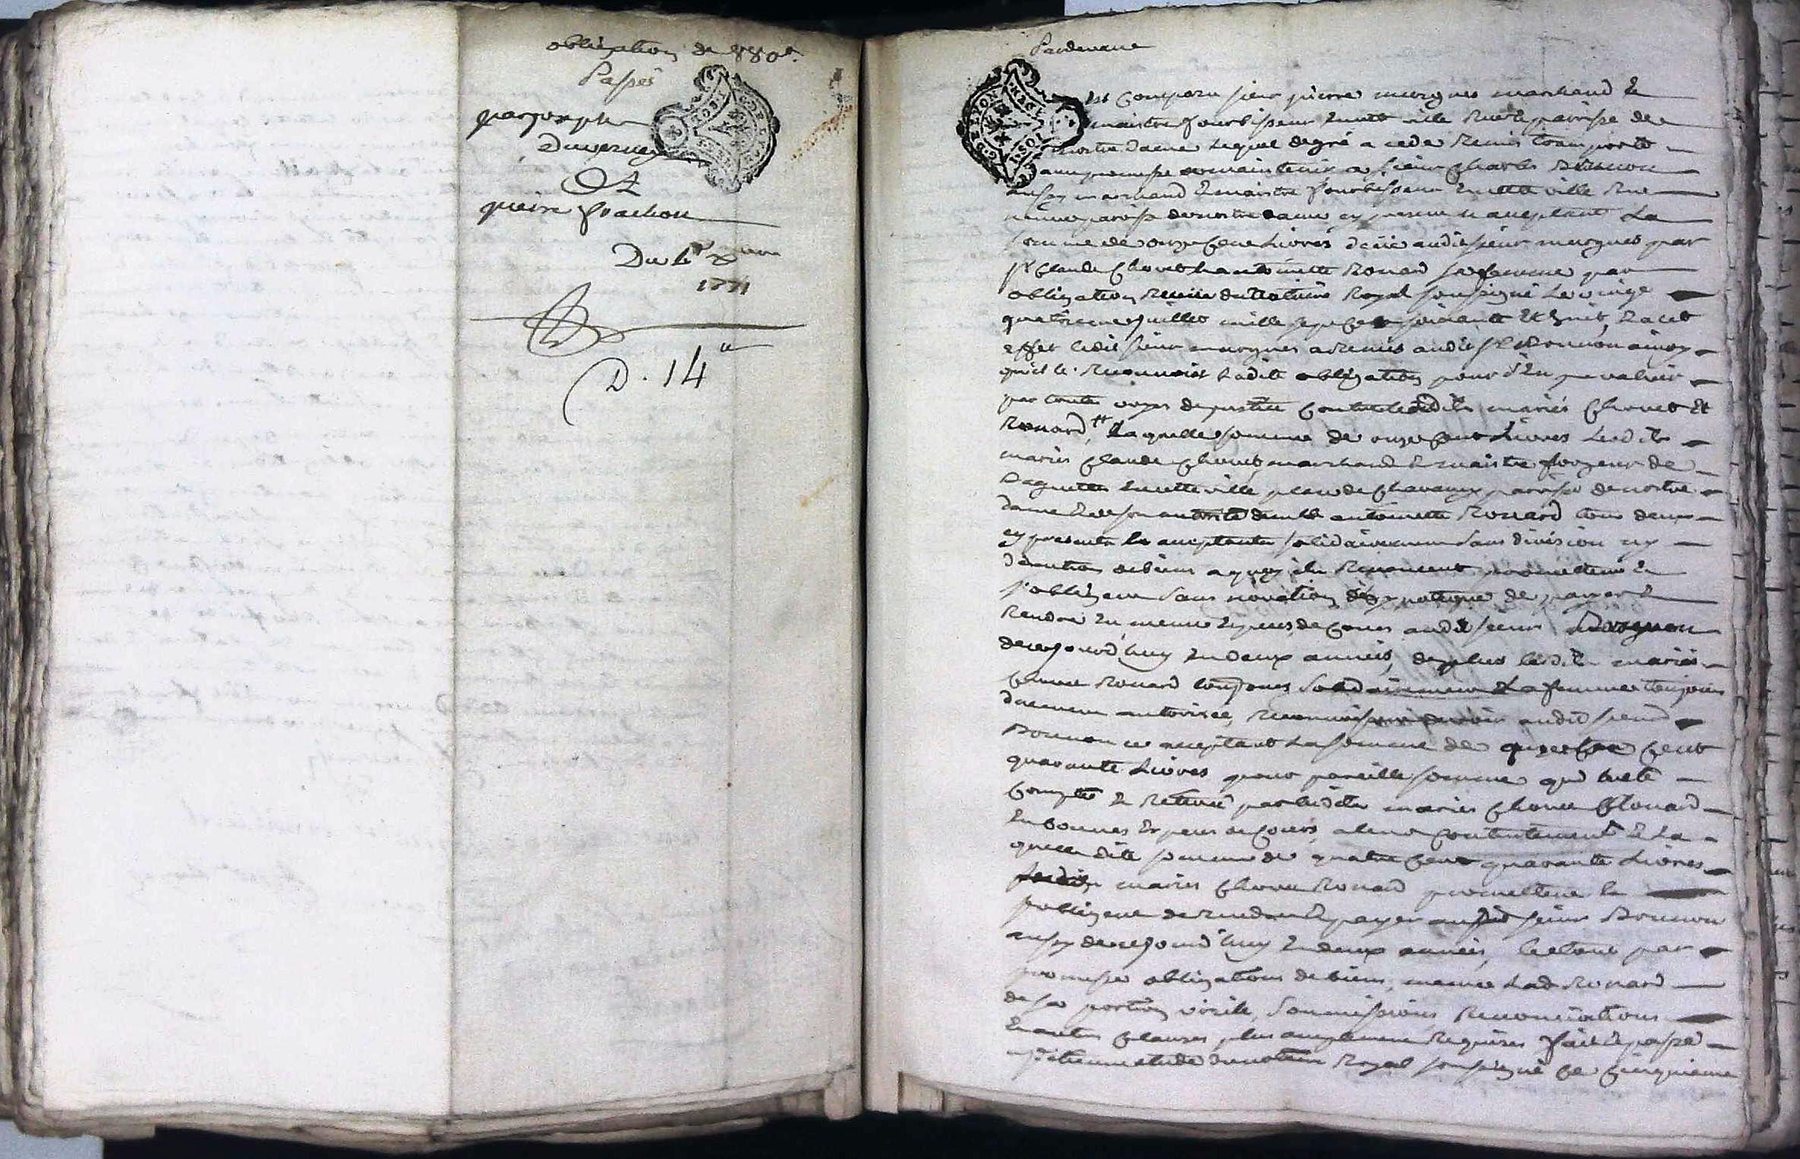 obligation de 880#
Passée
par joseph
Duvernay
Et
pierre frachon
Du 4e xbre
1771
D. 14#
Pardevant
est comparu sieur pierre mergues marchand &
maistre fourbisseur en cette ville Rue & parroisse de
nostre dame lequel de gré a cedé Remis transporté
avec promesse maintenir a sieur Charles Bonnon
aussy marchand & maistre fourbisseur en cette ville Rue
neuve parroisse de nostre dame cy present & acceptant La
somme de onze Cent Livres düe audit sieur mergues par
sr Claude Chovet & antoinette Ronard sa femme par
obligation Receüe du Notaire Royal soussigné Le vingt
quatrieme juillet mille sept Cent soixante Et huit, & a cet
effet ledit sieur mergues a Remis audit sr Bonnon ainsy
qu'il le Reconnoist Ladite obligation pour s'En prevaloir
par toutes voyes de justice Contre lesdits mariés Chovet Et
Ronard, Laquelle somme de onze Cent Livres Lesdits
mariés Claude Chovet marchand & maistre forgeur de
Baguettes En cette ville place de Chavanelle parroisse de nostre
dame & de son autorité antoinette Ronard tous deux
cy presents & acceptants solidairement sans division ny
discution de biens a quoy ils Renoncent promettent &
s'obligent sans novation d'hypoteque de payer &
Rendre En mesme Especes de Cours audit sieur Bonnon
de ce jourd'huy En deux années, de plus lesdits mariés
Chovet Ronard toujours solidairement & La femme toujours
düement autorisée, Reconnoissent devoir audit sieur
Bonnon ce acceptant La somme de quatre Cent
quarante Livres pour pareille somme qui a été
Comptée & Retirée par lesdits mariés Chovet & Ronard
En bonnes Especes de Cours, a leur Contentement & La
quelle dite somme de quatre Cent quarante Livres
lesdits mariés Chovet Ronard promettent &
s'obligent de rendre & payer audit sieur Bonnon
aussy de ce jourd'huy En deux années, le tout par
promesse obligations de biens, mesme Lad Ronard
de sa portion virile, soumissions Renonciations
& autres Clauses, plus amplement Requises fait & passé
a st etienne etude du notaire Royal soussigné Ce Cinquieme